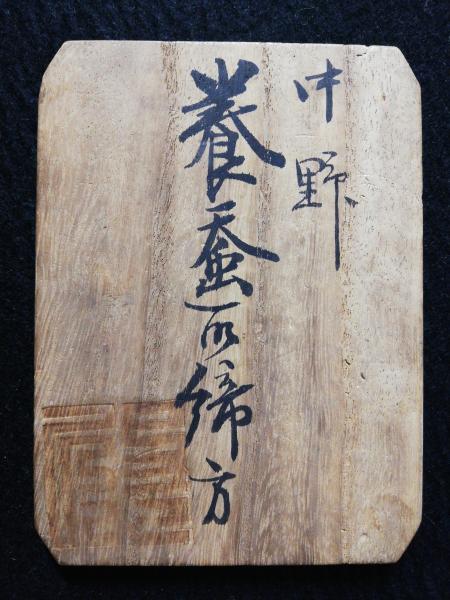 中野
養蚕取締方